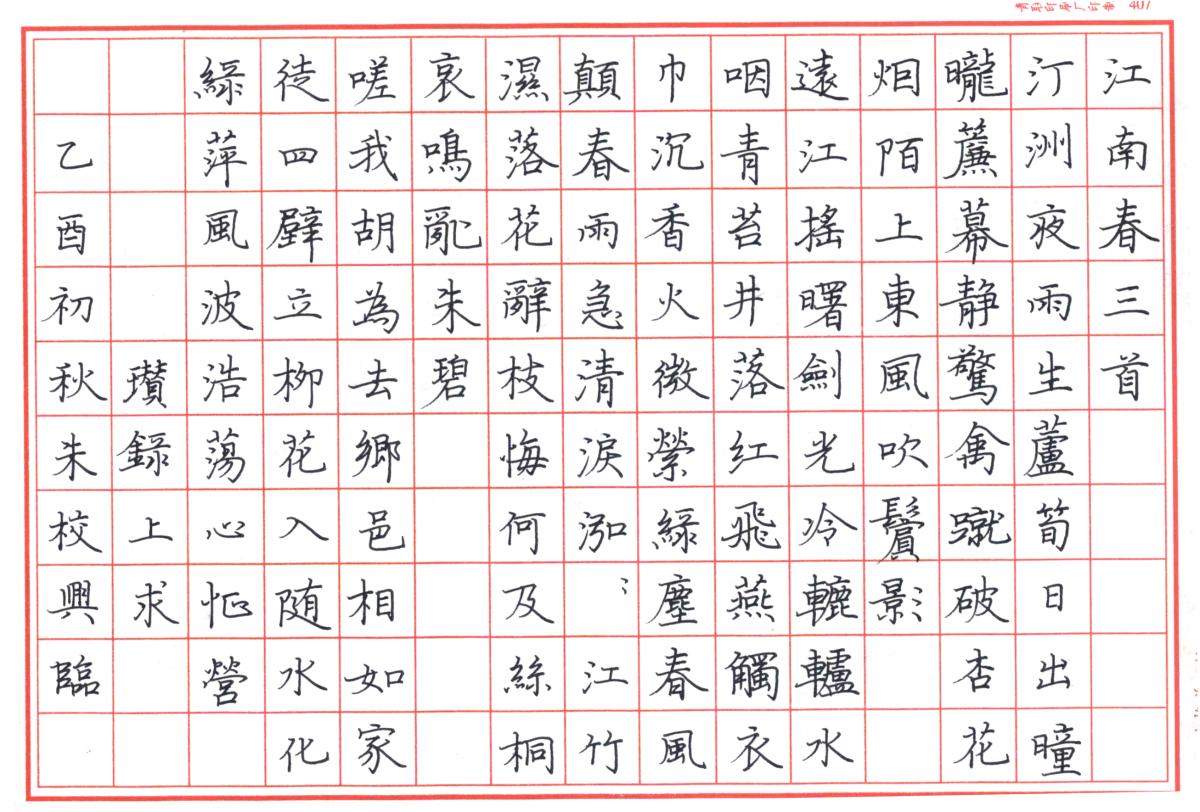 江南春三首
汀洲夜雨生蘆筍日出曈
曨簾幕静驚禽蹴破杏花
烟陌上東風吹鬢影
遠江搖曙劍光冷轆轤水
咽青苔井落紅飛燕觸衣
巾沉香火微縈綠塵春風
顛春雨急清淚泓ミ江竹
濕落花辭枝悔何及絲桐
哀鳴亂朱碧
嗟我胡為去鄉邑相如家
徒四壁立柳花入随水化
綠萍風波浩蕩心怔營
瓚錄上求
乙酉初秋朱校興臨
407